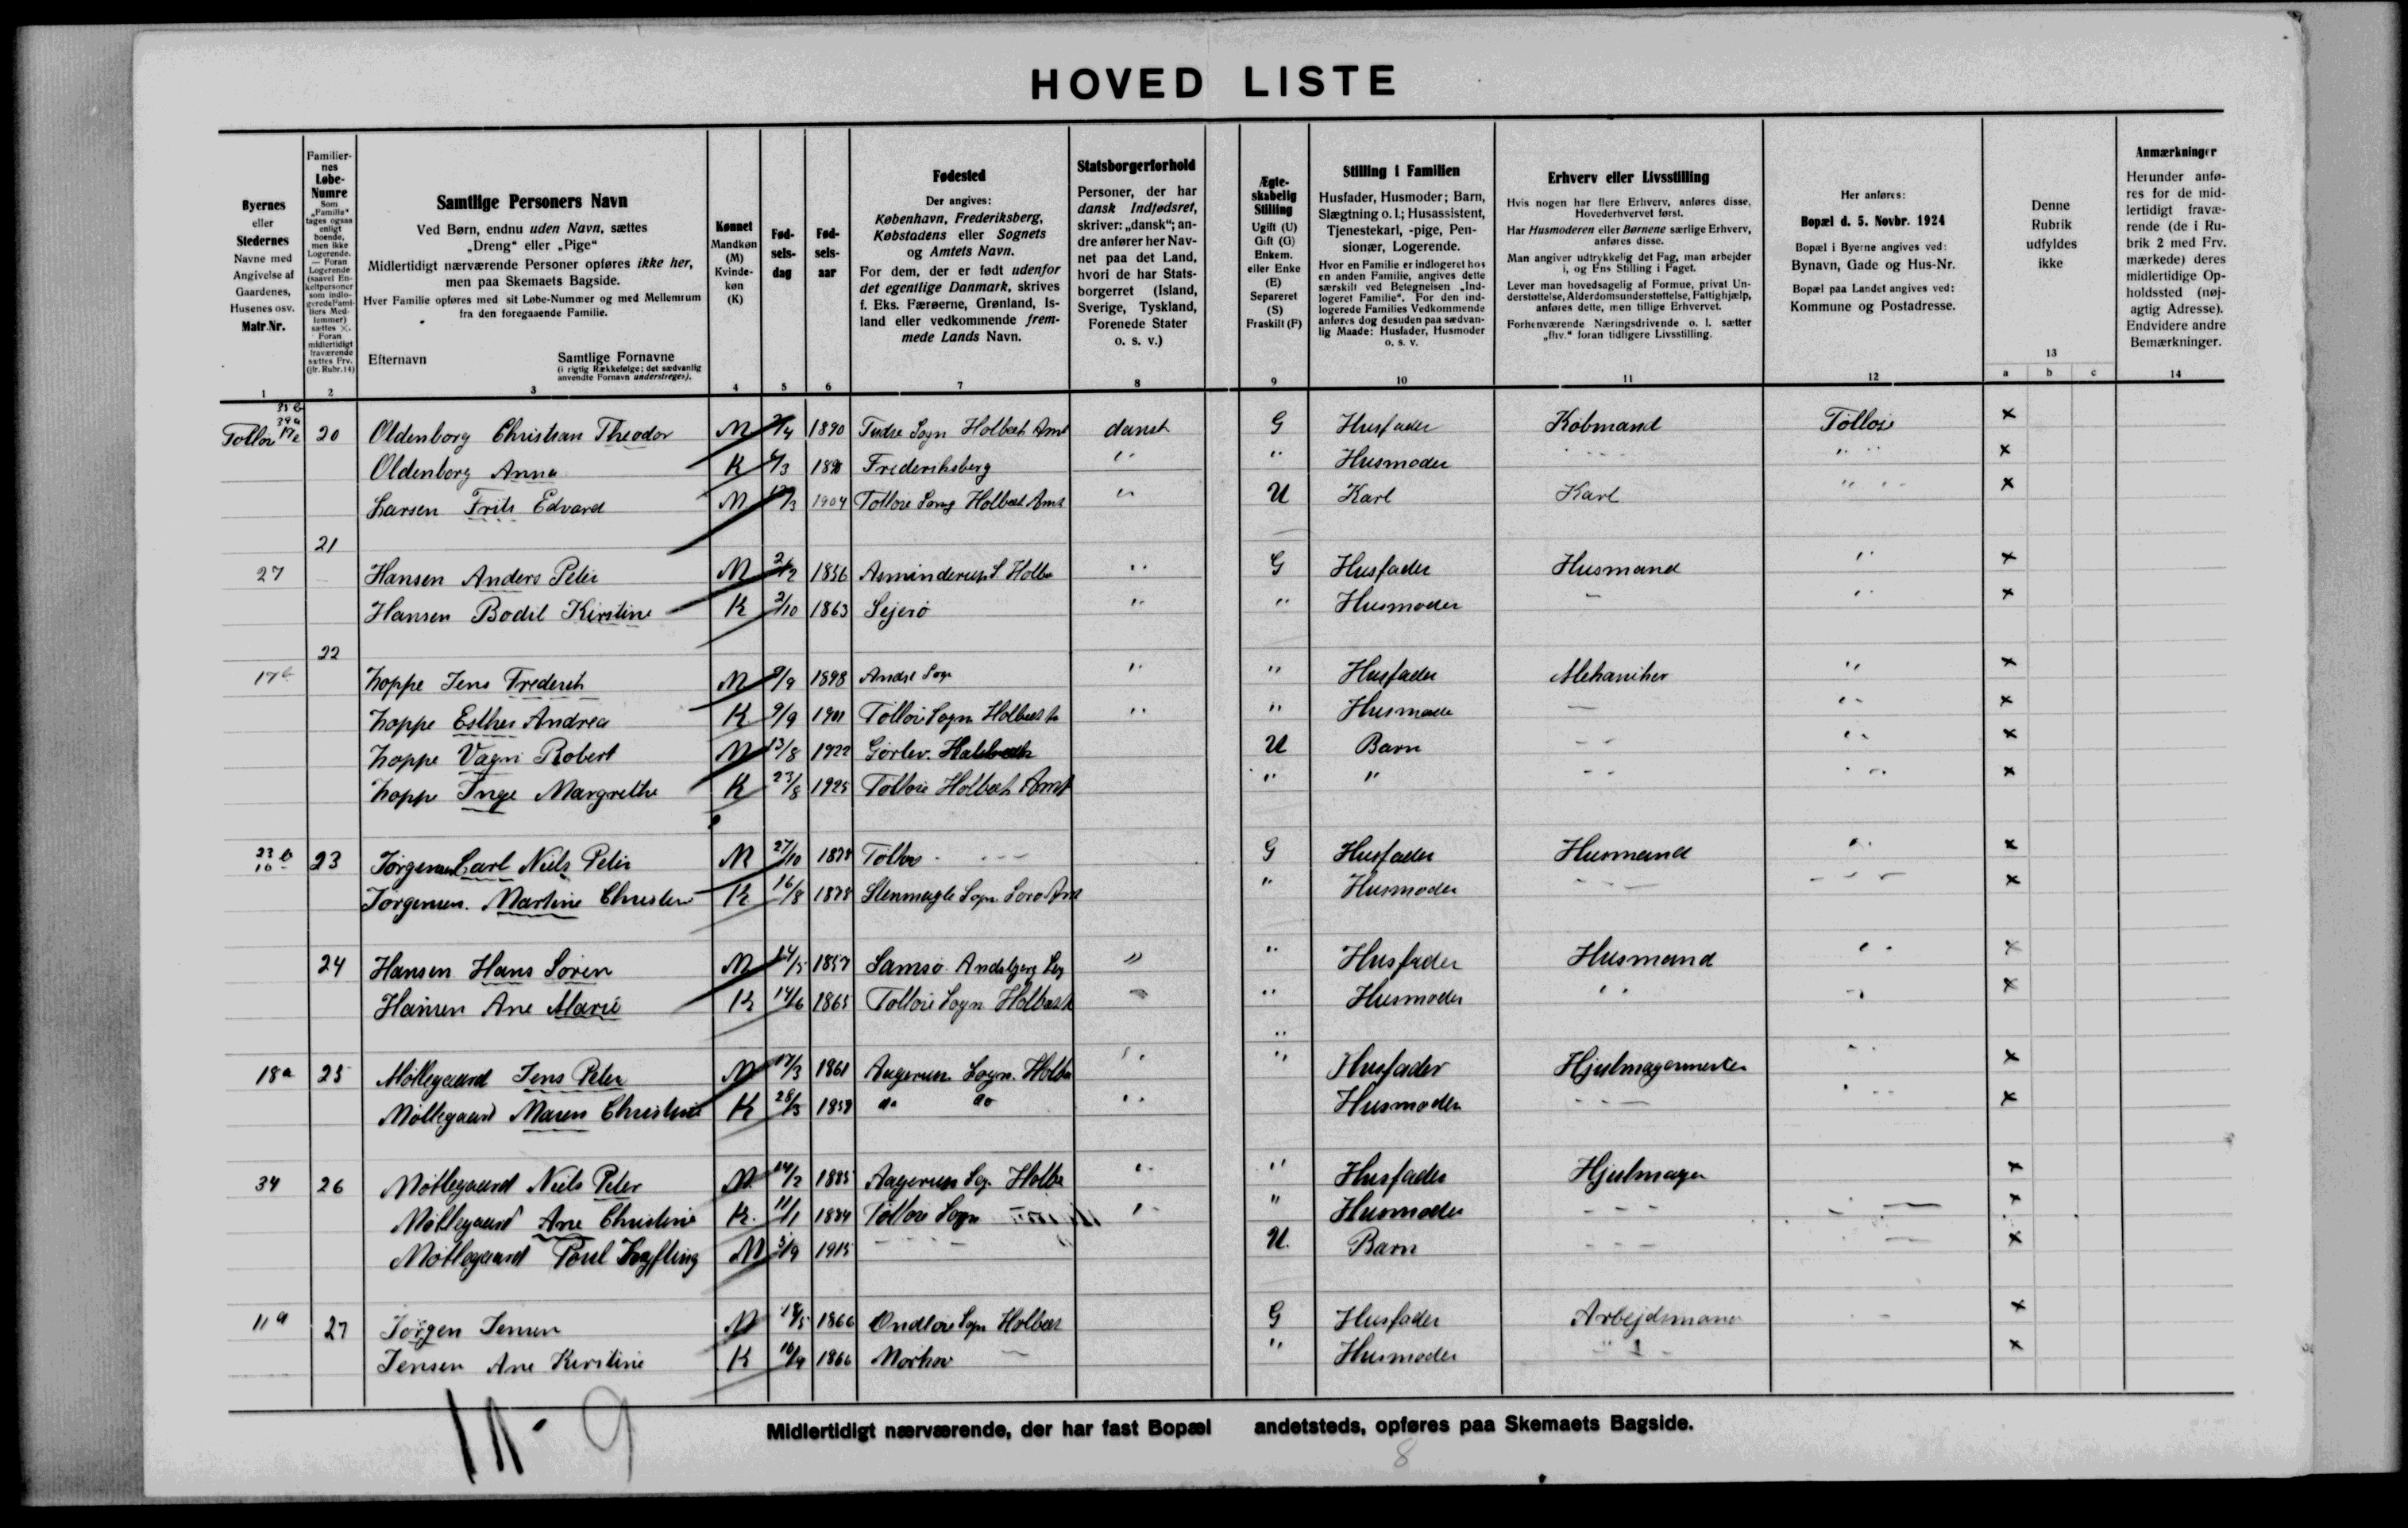 HOVED LISTE
Byernes
eller
Stedernes
Navne med
Angivelse af
Gaardenes,
Husenes osv.
Matr.Nr.
1
Familier-
nes
Løbe-
Numre
Som
„Familie“
tages ogsaa
enligt
boende,
men ikke
Logerende.
— Foran
Logerende
(saavel En-
keltpersoner
som indlo-
gerede Fami-
liers Med-
lemmer)
sættes ×.
Foran
midlertidigt
fraværende
sættes Frv.
(jfr. Rubr. 14)
2
Samtlige Personers Navn
Ved Børn, endnu uden Navn, sættes
„Dreng“ eller „Pige“
Midlertidigt nærværende Personer opføres ikke her,
men paa Skemaets Bagside.
Hver Familie opføres med sit Løbe-Nummer og med Mellemrum
fra den foregaaende Familie.
Efternavn
Samtlige Fornavne
(i rigtig Rækkefølge; det sædvanlig
anvendte Fornavn understreges).
3
Kønnet
Mandkøn
(M)
Kvinde-
køn
(K)
4
Fød-
sels-
dag
5
Fød-
sels-
aar
6
Fødested
Der angives:
København, Frederiksberg,
Købstadens eller Sognets
og Amtets Navn.
For dem, der er født udenfor
det egentlige Danmark, skrives
f. Eks. Færøerne, Grønland, Is-
land eller vedkommende frem-
mede Lands Navn.
7
Statsborgerforhold
Personer, der har
dansk Indfødsret,
skriver: „dansk“; an-
dre anfører her Nav-
net paa det Land,
hvori de har Stats-
borgerret (Island,
Sverige, Tyskland,
Forenede Stater
o. s. v.)
8
Ægte-
skabelig
Stilling
Ugift (U)
Gift (G)
Enkem.
eller Enke
(E)
Separeret
(S)
Fraskilt (F)
9
Stilling i Familien
Husfader, Husmoder; Barn,
Slægtning o. l.; Husassistent,
Tjenestekarl, -pige, Pen-
sionær, Logerende.
Hvor en Familie er indlogeret hos
en anden Familie, angives dette
særskilt ved Betegnelsen „Ind-
logeret Familie“. For den ind-
logerede Families Vedkommende
anføres dog desuden paa sædvan-
lig Maade: Husfader, Husmoder
o. s. v.
10
Erhverv eller Livsstilling
Hvis nogen har flere Erhverv, anføres disse,
Hovederhvervet først.
Har Husmoderen eller Børnene særlige Erhverv,
anføres disse.
Man angiver udtrykkelig det Fag, man arbejder
i, og Ens Stilling i Faget.
Lever man hovedsagelig af Formue, privat Un-
derstøttelse, Alderdomsunderstøttelse, Fattighjælp,
anføres dette, men tillige Erhvervet.
Forhenværende Næringsdrivende o. l. sætter
„fhv.“ foran tidligere Livsstilling.
11
Her anføres:
Bopæl d. 5. Novbr. 1924
Bopæl i Byerne angives ved:
Bynavn, Gade og Hus-Nr.
Bopæl paa Landet angives ved:
Kommune og Postadresse.
12
Denne
Rubrik
udfyldes
ikke
13
a b c
Anmærkninger
Herunder anfø-
res for de mid-
lertidigt fravæ-
rende (de i Ru-
brik 2 med Frv.
mærkede) deres
midlertidige Op-
holdssted (nøj-
agtig Adresse).
Endvidere andre
Bemærkninger.
14
20 Oldenborg Christian Theodor M 1890 Tudse Sogn Holbæk Amt dansk G Husfader Købmand Tølløse ×
Oldenborg Anna K Frederiksberg " " Husmoder " ×
Larsen Frits Edvard M 1904 Tølløse Sogn Holbæk Amt " U Karl Karl " ×
21
27 Hansen Anders Peter M 2/2 1856 Asminderup S. Holbæ " G Husfader Husmand " ×
Hansen Bodil Kirstine K 2/10 1863 Sejerø " " Husmoder – " ×
22
17b Hoppe Jens Frederik M 1898 Sogn " " Husfader Mekaniker " ×
Hoppe Esther Andrea K 9/9 1901 Tølløse Sogn Holbæk " " Husmoder – " ×
Hoppe Vagn Robert M 13/8 1922 Gørlev. Holbæk U Barn – – " ×
Hoppe Inge Margrethe K 23/8 1925 Tølløse Holbæk Amt " " – – " ×
23 Jørgensen Carl Niels Peter M 27/10 1878 Tølløse G Husfader Husmand " ×
Jørgensen. Martine Christine K 16/8 1878 Stenmagle Sogn Sorø Amt " Husmoder – – – ×
24 Hansen Hans Søren M 1857 Samsø Sog " " Husfader Husmand " ×
Hansen Ane Marie K 14/6 1865 Tølløse Sogn Holbæk " " Husmoder " " ×
18a 25 Møllegaard Jens Peter M 17/3 1861 Aagerup Sogn. Holbæ " " Husfader Hjulmagermester " ×
Møllegaard Maren Christine K 1858 do do " Husmoder – – – ×
34 26 Møllegaard Niels Peter M 1885 Aagerup Sog Holbæ " " Husfader Hjulmager ×
Møllegaard Ane Christine K. 11/1 1884 Tølløse Sogn " " Husmoder – – – ×
Møllegaard Poul M 5/9 1915 – – – – U. Barn – – – ×
11a 27 Jørgen Jensen M 1866 Ondløse Sogn Holbæk G Husfader Arbejdsmand ×
Jensen Ane Kirstine K 1866 Mørkøv – " Husmoder ×
Midlertidigt nærværende, der har fast Bopæl andetsteds, opføres paa Skemaets Bagside.
9
8